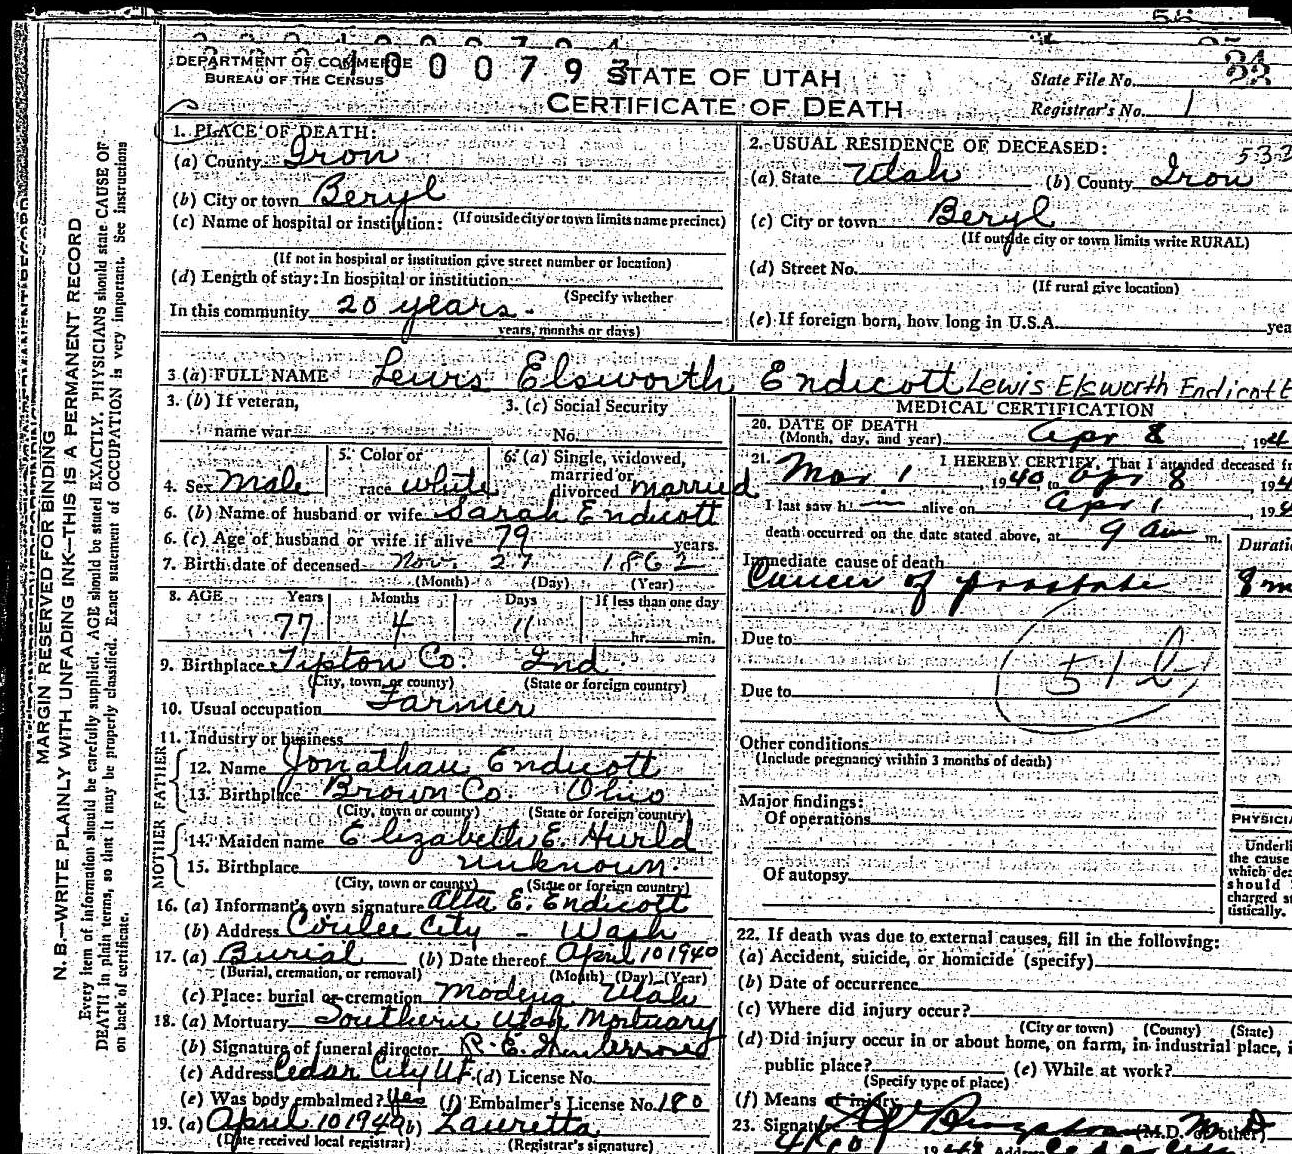 DEPARTMENT OF COMMERCE
BUREAU OF THE CENSUS
STATE OF UTAH
CERTIFICATE OF DEATH
State File No.
Registrar's No. 1
MARGIN RESERVED FOR BINDING
N. B.—WRITE PLAINLY WITH UNFADING INK—THIS IS A PERMANENT RECORD
Every item of information should be carefully supplied. AGE should be stated EXACTLY. PHYSICIANS should state CAUSE OF
DEATH in plain terms, so that it may be properly classified. Exact statement of OCCUPATION is very important. See instructions
on back of certificate.
1. PLACE OF DEATH:
(a) County Iron
(b) City or town Beryl
(If outside city or town limits name precinct)
(c) Name of hospital or institution:
(If not in hospital or institution give street number or location)
(d) Length of stay: In hospital or institution
(Specify whether
In this community 20 years.
years, months or days)
2. USUAL RESIDENCE OF DECEASED:
(a) State Utah (b) County Iron
(c) City or town Beryl
(If outside city or town limits write RURAL)
(d) Street No.
(If rural give location)
(e) If foreign born, how long in U.S.A. yea
3 (a) FULL NAME Lewis Elsworth Endicott Lewis Elsworth Endicott
3. (b) If veteran,
name war
3. (c) Social Security
No.
4. Sex Male
5. Color or
race white
6. (a) Single, widowed,
married or
divorced married
6. (b) Name of husband or wife Sarah Endicott
6. (c) Age of husband or wife if alive 79 years.
7. Birth date of deceased Nov. 27 1862
(Month) (Day) (Year)
8. AGE Years Months Days If less than one day
77 4 11 hr. min.
9. Birthplace Tipton Co. Ind.
(City, town or county) (State or foreign country)
10. Usual occupation Farmer
11. Industry or business
FATHER
12. Name Jonathan Endicott
13. Birthplace Brown Co. Ohio
(City, town or county) (State or foreign country)
MOTHER
14. Maiden name Elizabeth E. Hurld
15. Birthplace unknown.
(City, town or county) (State or foreign country)
16. (a) Informant's own signature Alta E. Endicott
(b) Address Coulee City - Wash
17. (a) Burial (b) Date thereof April 10 1940
(Burial, cremation, or removal) (Month) (Day) (Year)
(c) Place: burial or cremation Modena Utah
18. (a) Mortuary Southern Utah Mortuary
(b) Signature of funeral director R. E.
(c) Address Cedar City Ut. (d) License No.
(e) Was body embalmed? Yes (f) Embalmer's License No. 180
19. (a) April 10 1940 (b) Lauretta
(Date received local registrar) (Registrar's signature)
MEDICAL CERTIFICATION
20. DATE OF DEATH
(Month, day, and year) Apr 8, 194
21. I HEREBY CERTIFY, That I attended deceased fr
Mar. 1, 1940 to Apr 8, 194
I last saw h alive on Apr 1, 19
death occurred on the date stated above, at 9 am m.
Duratio
Immediate cause of death
Cancer of prostate
Due to
51 b
Due to
Other conditions
(Include pregnancy within 3 months of death)
Major findings:
Of operations
Of autopsy
PHYSICIA
Underli
the cause
which dea
should
charged st
tistically.
22. If death was due to external causes, fill in the following:
(a) Accident, suicide, or homicide (specify)
(b) Date of occurrence
(c) Where did injury occur?
(City or town) (County) (State)
(d) Did injury occur in or about home, on farm, in industrial place, i
public place? (e) While at work?
(Specify type of place)
(f) Means of injury
23. Signature M. D
(M.D. or other)